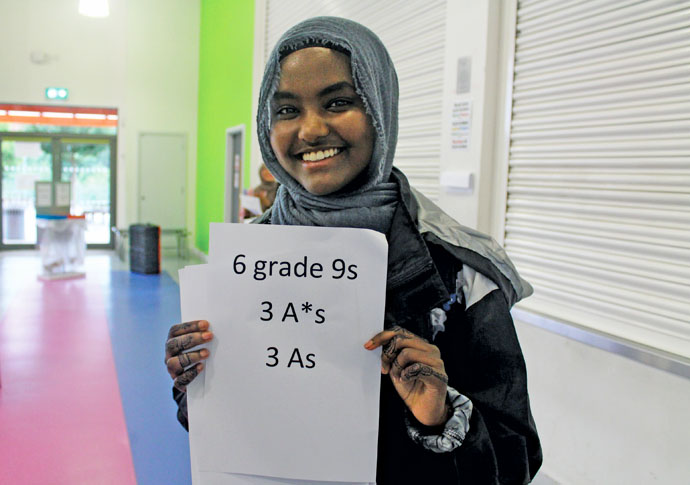 6 grade 9s
3 A*s
3 As